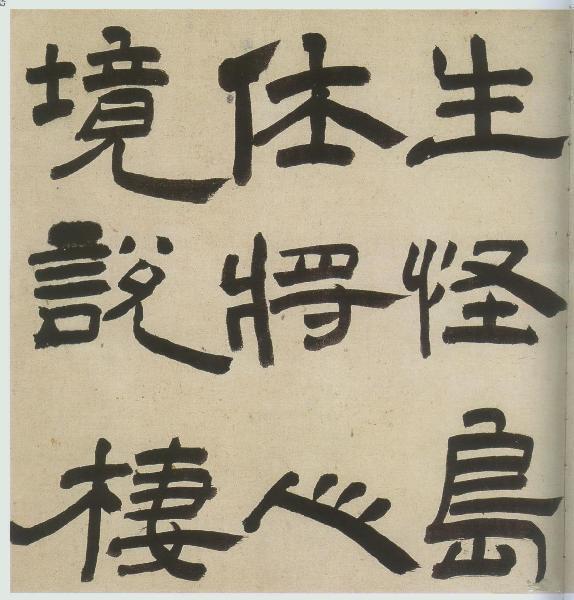 生怪島
体將心
境說棲